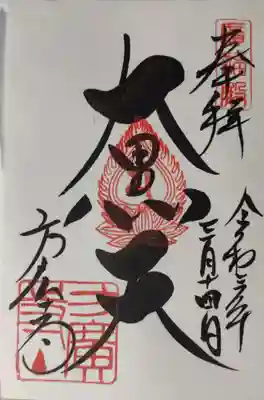 奉拝
大黒天
令和年
月十四日
方広寺